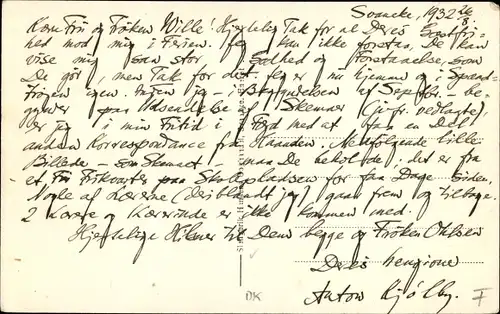 Svaneke, 1932 26/8.
Kære Frú og Frøken Wille! Hjertelig Tak for al Deres Gæstfri-
hed mod mig i Ferien. Jeg kan ikke forstaa, De kan
vise mig saa stor Godhed og Forstaaelse, som
De gør, men Tak for det. Jeg er nu hjemme og i
igen. i Begyndelsen af Septbr. be-
gynder paa Udsendelse af Skemaer (jfr. vedlagte),
er jeg i min Fritid i Færd med at faa en Del
anden Korrespondance fra Haanden. Medfølgende lille
Billede – som Skuecet – maa De beholde; det er fra
et Frikvarter paa Skolepladsen for faa Dage siden
Nogle af Lærerne (deriblandt jeg) gaar frem og tilbage.
2 Lærere og Lærerinde er ikke kommen med.
Hjertelige Hilsner til Dem begge og Frøken Ohlsen
Deres hengivne
Anton Kjølby.
DK
F